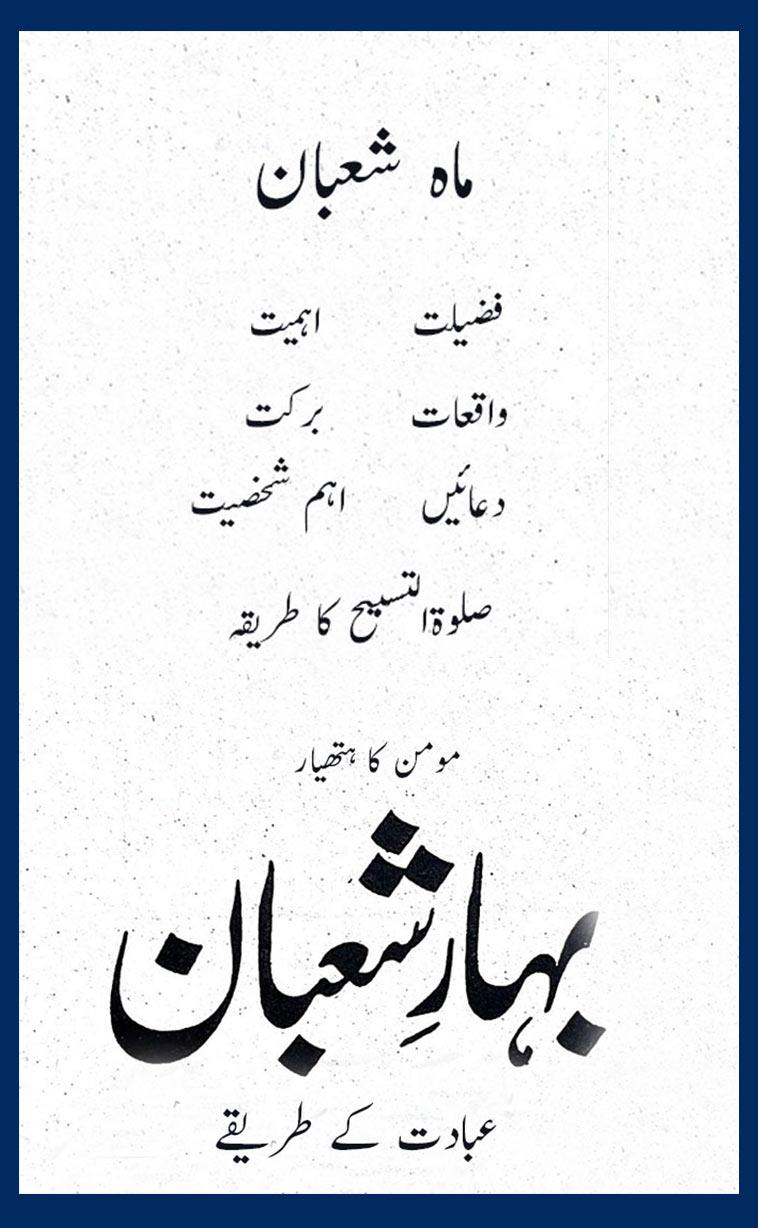 ماہ شعبان
فضیلت اہمیت
واقعات برکت
دعائیں اہم شخصیت
صلوۃالتسبیح کا طریقہ
مومن کا ہتھیار
بہارِ شعبان
عبادت کے طریقے